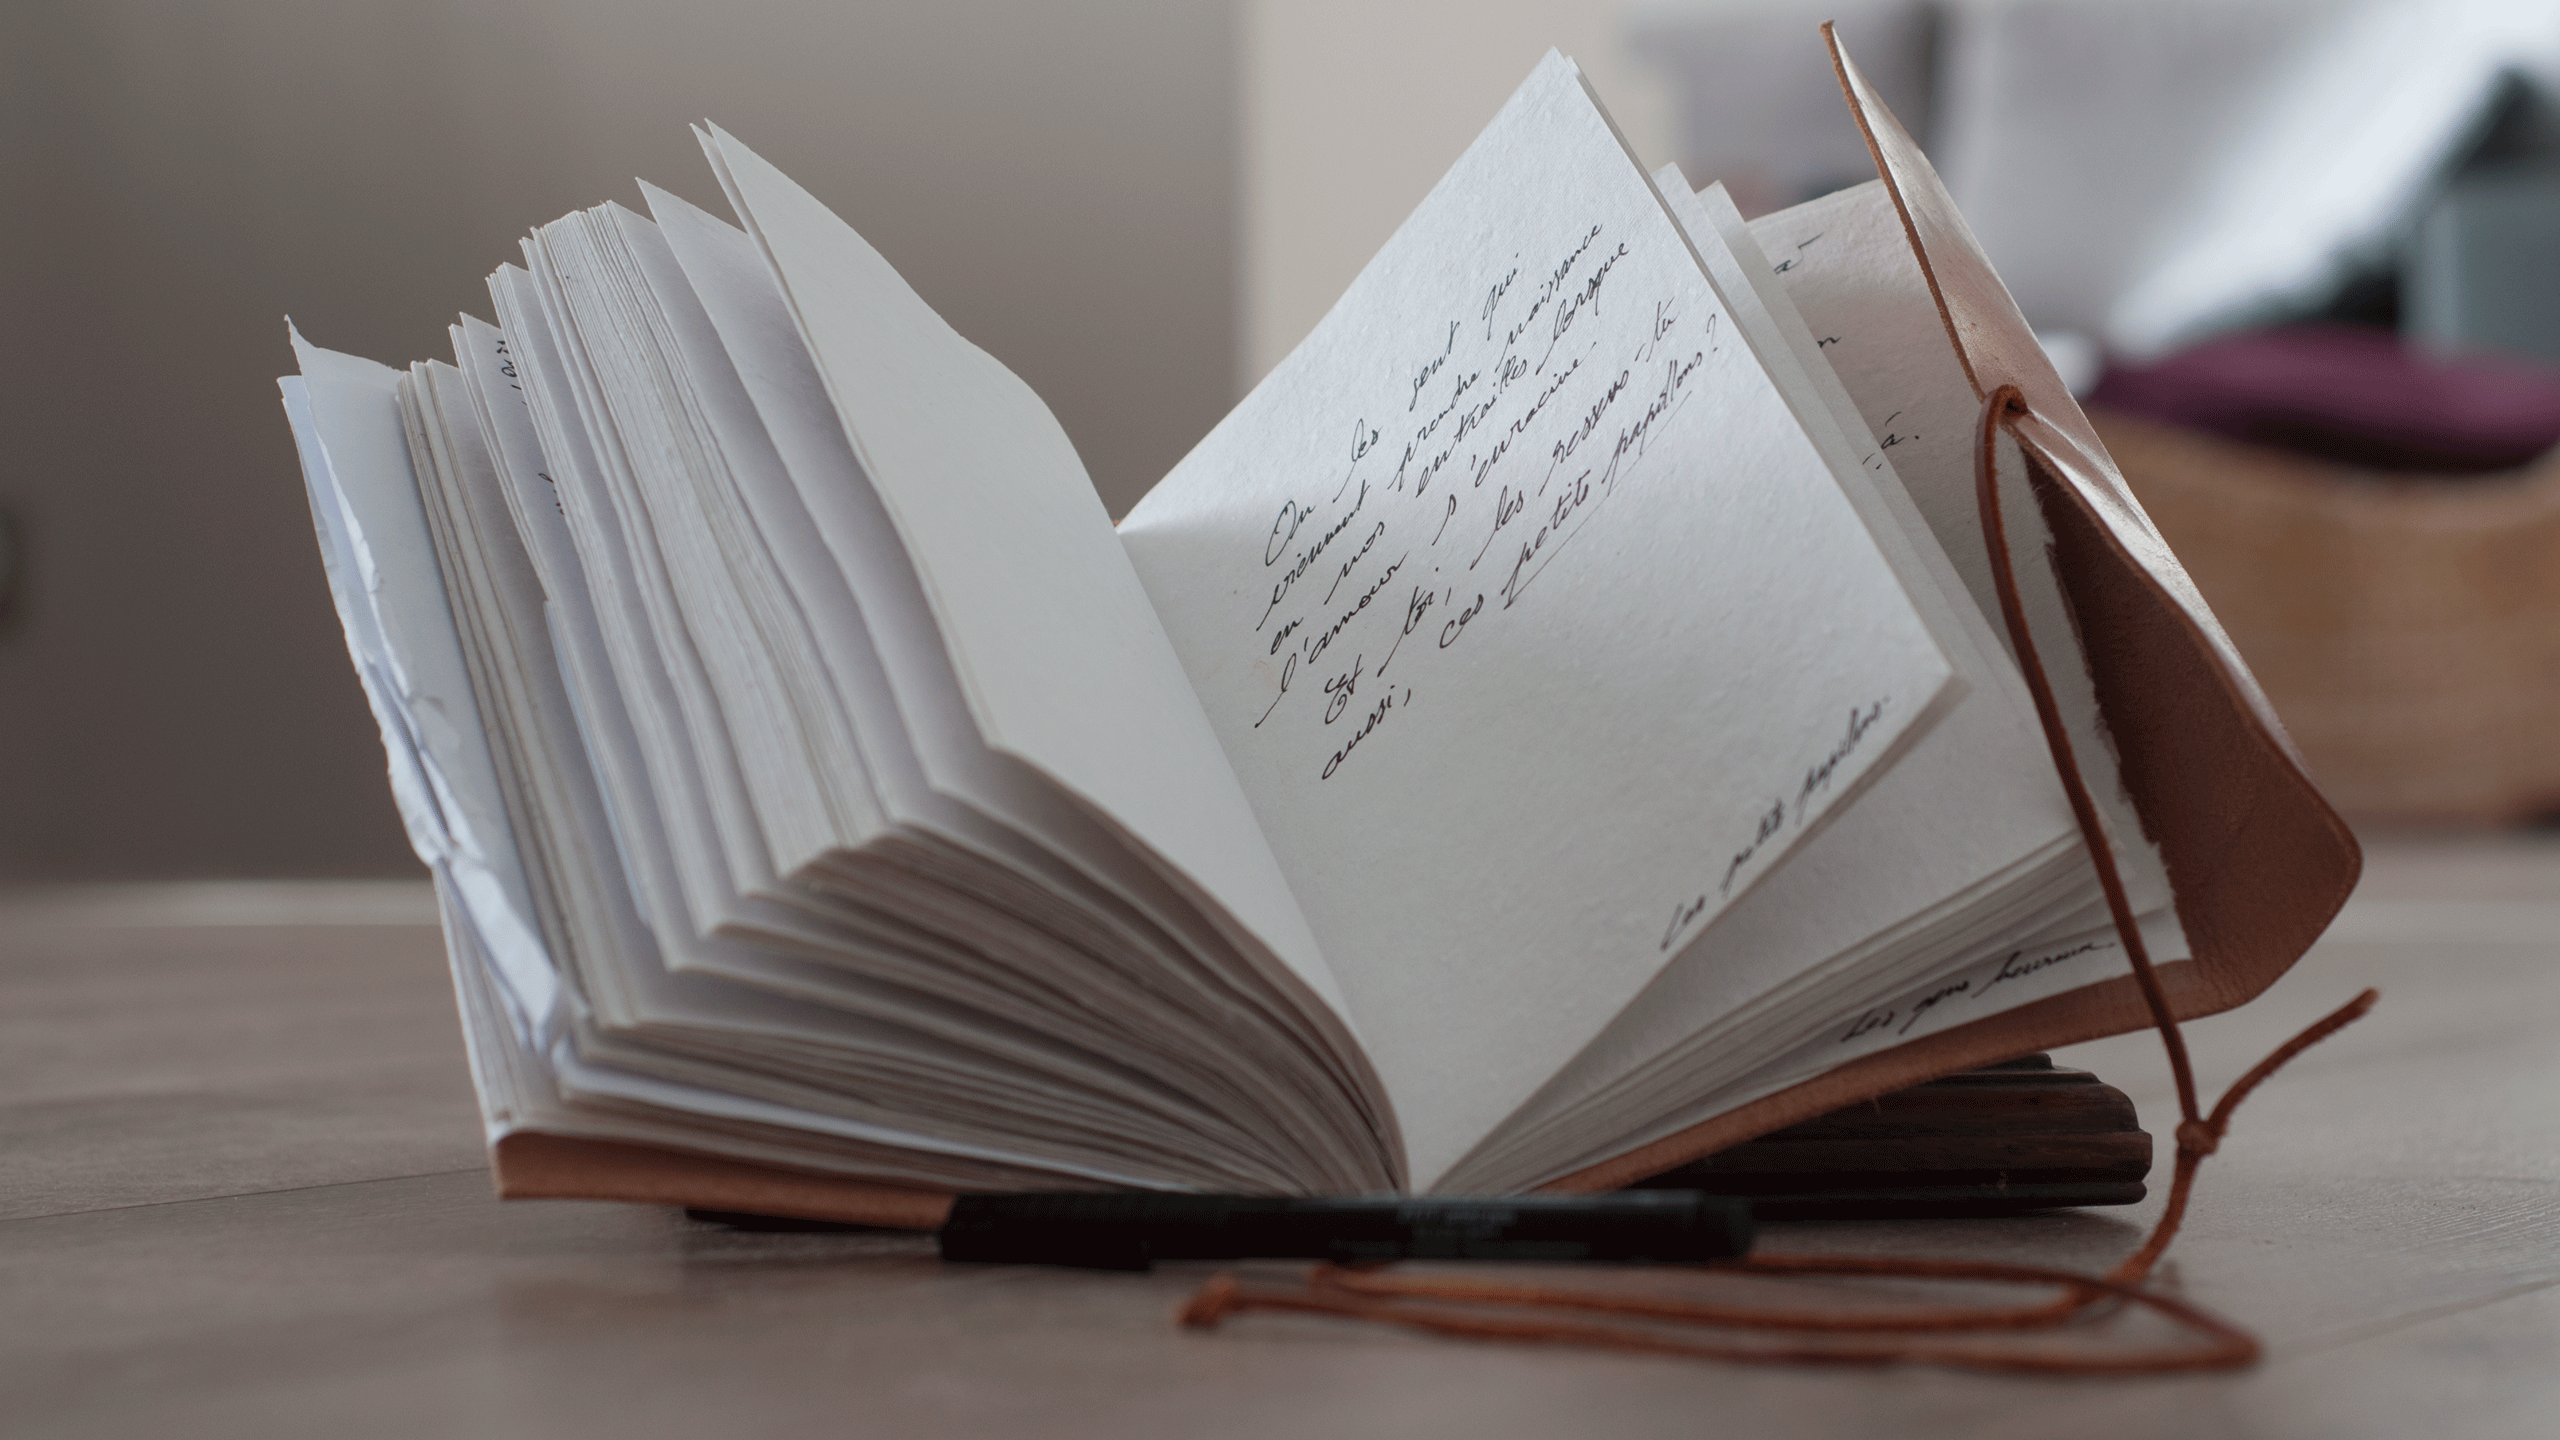 On les sent qui
viennent prendre naissance
en nos entrailles lorsque
l'amour s'enracine.
Et toi, les ressens-tu
aussi, ces petits papillons?
Les petits papillons.
Les gens heureux.
à.